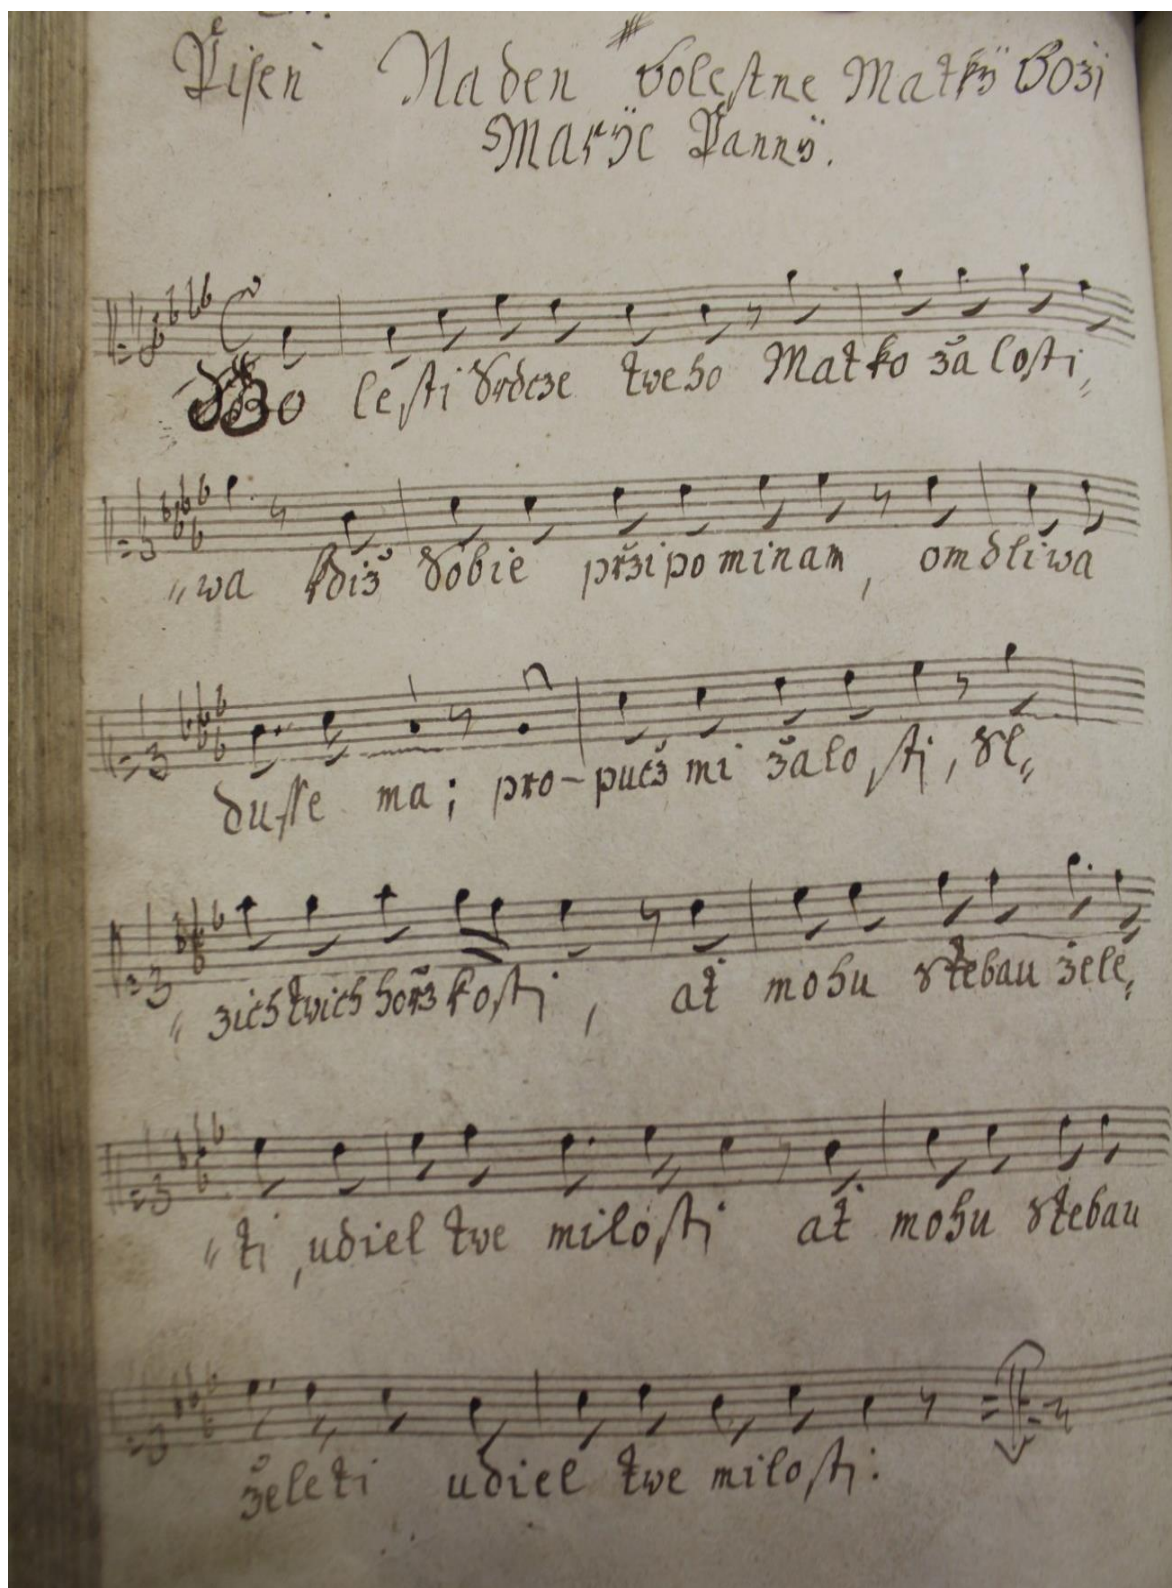 Pěiſen Na den Boleſtne Matky Bozi
Maryc Panny.
Bo leſti Srdcze tweho Matko ža loſti„
„wa kdiž Sobie pržipo minam, omdliwa
duſſe ma; pro-pucž mi žalo ſti, Sl„
„zich twich hořzkoſti, at mohu Stebau žele„
„ti, udiel twe miloſti at mohu Stebau
želeti udiel twe miloſti: